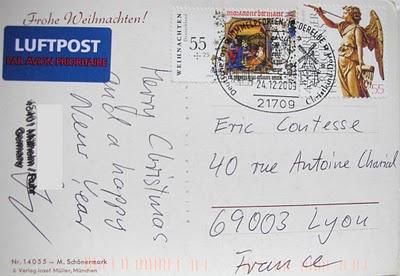 Frohe Weihnachten!
LUFTPOST
PAR AVION PRIORITAIRE
WEIHNACHTEN
55
+ 25
Deutschland
24.12.2003
21709
55
Merry Christmas
and a happy
New Year
Germany
Eric Coutesse
40 rue Antoine Charial
69003 Lyon
France
Nr. 14055 – M. Schönermark
© Verlag Josef Müller, München